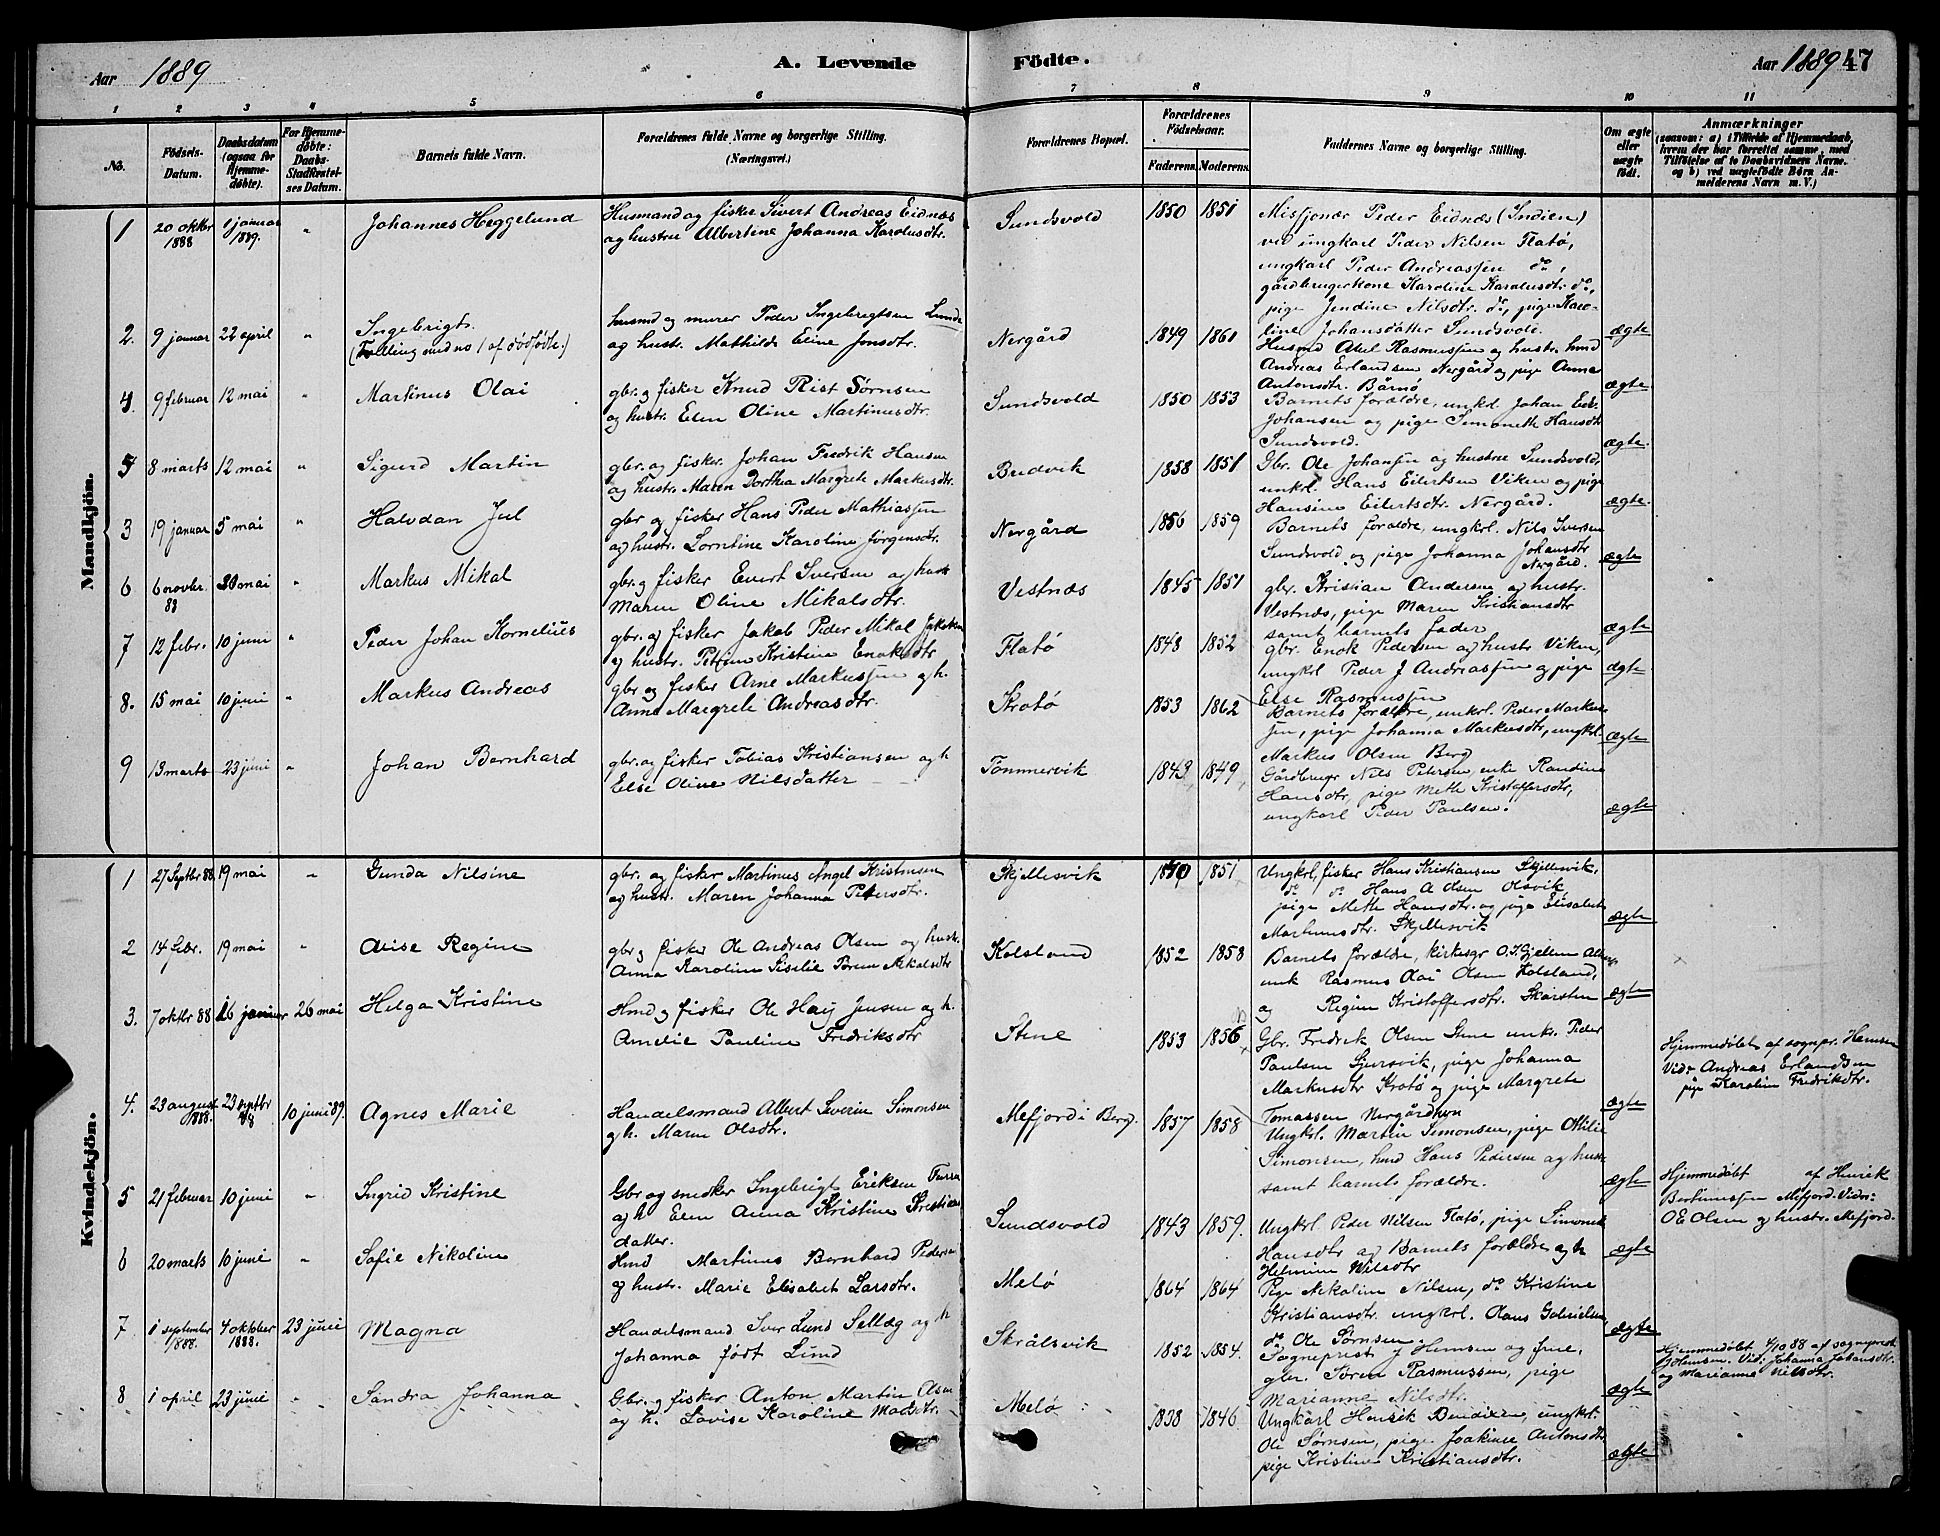 Aar 1889
A. Levende Födte.
Aar 1889 47
1 2 3 4 5 6 7 8 9 10 11
No.
Födsels-Datum.
Daabsdatum (ogsaa for Hjemmedöbte).
For Hjemmedöbte: Daabs-Stadfæstelses Datum.
Barnets fulde Navn.
Forældrenes fulde Navne og borgerlige Stilling. (Næringsvei.)
Forældrenes Bopæl.
Forældrenes Födselsaar.
Faderens. Moderens.
Faddernes Navne og borgerlige Stilling.
Om ægte eller uægte födt.
Anmærkninger
(saasom: a) i Tilfælde af Hjemmedaab, hvem der har forrettet samme, med Tilföielse af to Daabsvidners Navne. og b) ved uægtefödte Börn Anmelderens Navn m. V.)
Mandkjön.
1 20 oktbr 1888 1 januar 1889. " Johannes Heggelund
Husmand og fisker Sivert Andreas Eidnæs
og hustru Albertine Johanna Karolusdtr.
Sundsvold 1850 1851
Missjonær Peder Eidnæs (Indien)
ved ungkarl Peder Nilsen Flatø,
ungkarl Peder Andreassen do,
gårdbrugerkone Karoline Karolusdtr. do,
pige Jendine Nilsdtr. do, pige Karo-
line Johansdatter Sundsvold. ægte
2. 9 januar 22 april " Ingebrigt.
(Tvilling med no 1 af dødfødte.)
husmd og murer Peder Ingebrigtsen Lunde
og hustr. Mathilde Eline Jonsdtr.
Nergård 1849 1860
Husmd Abel Rasmussen og hustr. hmd
Andreas Erlandsen Nergård og pige Anna
Antonsdtr. Bårnø ægte.
4. 9 februar 12 mai " Martinus Olai
gbr. og fisker Knud Rist Sørnsen
og hustr. Elen Oline Martinusdtr.
Sundsvold 1850 1853
Barnets forældre, unkl. Johan Edv.
Johansen og pige Simonette Hansdtr
Sundsvold. ægte.
5 8 marts 12 mai " Sigurd Martin
gbr. og fisker. Johan Fredrik Hansen
og hustr. Maren Dorthea Margrete Markusdtr.
Budvik 1858 1851
Gbr. Ole Johansen og hustru Sundsvold,
unkrl. Hans Eilertsen Viken og pige
Hansine Eilertsdtr. Nergård. ægte.
3 19 januar 5 mai " Halvdan Jul
gbr og fisker Hans Peder Mathiassen
og hustr. Lorntine Karoline Jørgensdtr.
Nergård 1856 1859
Barnets forældre, ungkrl. Nils Iversen
Sundsvold og pige Johanna Johansdtr
Nergård. ægte
6 6 novbr. 88 30 mai " Markus Mikal
gbr. og fisker Evert Iversen og hustr
Maren Oline Mikalsdtr.
Vestnæs 1845 1851
gbr. Kristian Andersen og hustr.
Vestnæs, pige Maren Kristiansdtr
samt barnets fader ægte
7 12 febr. 10 juni " Peder Johan Kornelius
gbr. og fisker Jakob Peder Mikal Jakobsen
og hustr. Petrine Kristine Enoksdtr
Flatø 1848 1852
gbr. Enok Pedersen og hustr Viken,
ungkrl Peder J Andreassen og pige
Else Rasmussen ægte
8. 15 mai 10 juni " Markus Andreas
gbr og fisker Arne Markussen og h.
Anna Margrete Andreasdtr.
Krotø 1853 1862
Barnets forældre, unkrl. Peder Markus-
sen, pige Johanna Markusdtr, ungkl.
Markus Olsen Berg ægte
9 13 marts 23 juni " Johan Bernhard
gbr. og fisker Tobias Kristiansen og h
Else Oline Nilsdatter
Tømmervik 1843 1849
Gårdbrugr Nils Petersen, enke Randine
Hansdtr, pige Mette Kristoffersdtr,
ungkarl Peder Paulsen. ægte
Kvindekjön.
1 27 Septbr 88 19 mai " Gunda Nilsine
gbr. og fisker Martinus Angel Kristensen
og hustr. Maren Johanna Petersdtr.
Skjellesvik 1851
Ungkrl, fisker Hans Kristiansen Skjellesvik,
do do Hans A Olsen Olsvik,
pige Mette Hansdtr. og pige Elisabet
Martinusdtr. Skjellesvik ægte
2 14 febr. 19 mai " Alise Regine
gbr. og fisker Ole Andreas Olsen og hustr.
Anna Karoline Sisilie Børne Mikalsdtr
Kolsland 1852 1858
Barnets forældre, kirkesgr O. J. Gjellem
unk Rasmus Olai Olsen Kolsland,
og Regine Kristoffersdtr. Skårsten ægte
3. 7 oktbr 88 16 januar 26 mai Helga Kristine
Hmd og fisker Ole Haij Jensen og h.
Amelie Pauline Fredriksdtr
Stene 1853 1856
Gbr. Fredrik Olsen Stene unkr. Peder
Paulsen Gjersvik, pige Johanna
Markusdtr Krotø og pige Margrete
Tomassen Nergårdhvn ægte
Hjemmedøbt af sognpr. Hemsen
Vidr Andreas Erlandsen
pige Karoline Fredriksdtr.
4. 23 august 1888. 23 septbr 88 10 juni 89. Agnes Marie
Handelsmand Albert Severin Simonsen
og h. Maren Olsdtr.
Mefjord i Berg. 1857 1858
Ungkrl. Martin Simonsen, pige Otilie
Simonsen, hmd Hans Pedersen og hustr
samt barnets forældre. ægte
Hjemmedøbt af Henrik
Bertinussen Mefjord. Vidn:
O E Olsen og hustr. Mefjord.
5 21 februar 10 juni " Ingrid Kristine
Gbr og snedker Ingebrigt Eriksen Furra
og h Elen Anna Kristine Kristian
datter.
Sundsvold 1843 1859.
Ungkrl. Peder Nilsen Flatø, pige Simonet
Hansdtr og Barnets forældre og h
Helmine Nilsdtr ægte
6 20 marts 10 juni " Sofie Nikoline
Hmd Martinus Bernhard Pedersen
og hustr. Marie Elisabet Larsdtr.
Melø 1864 1864
Pige Nikoline Nilsen, do Kristine
Kristiansdtr. ungkrl. Claus Gabrielsen,
do Ole Sørnsen. ægte
7 1 september 1888. 4 oktober 1888. 23 juni Magna
Handelsmand Iver Lund Sellæg og h
Johanna født Lund
Skrålsvik 1852 1854.
Sogneprest J Hemsen og frue,
gbr. Søren Rasmussen, pige
Marianne Nilsdtr. ægte
Hjemmedøbt 4/10 88 af sogneprest
J Hemsen. Vid: Johanna Johansdtr.
og Marianne Nilsdtr.
8 1 april 23 juni " Sandra Johanna
Gbr. og fisker Anton Martin Olsen
og h. Lovise Karoline Madsdtr.
Melø 1838 1846
Ungkarl Henrik Bendixen, ungkrl.
Ole Sørnsen, pige Joakime Antonsdtr
pige Kristine Kristiansdtr. ægte